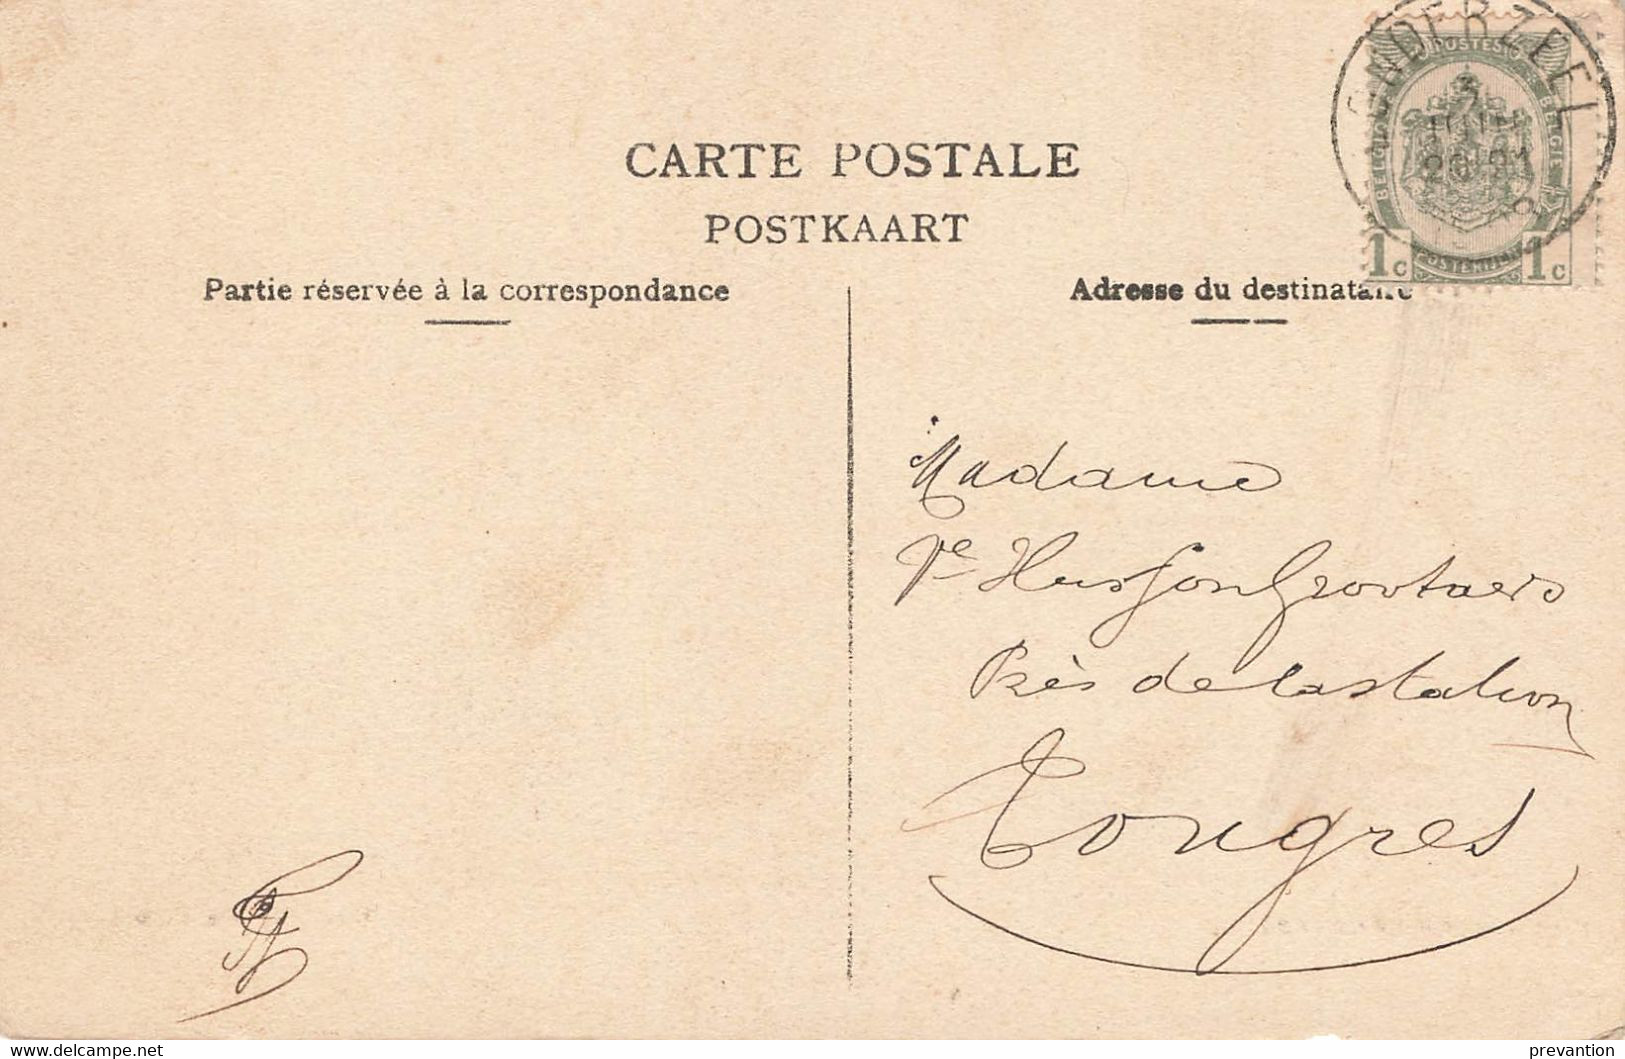 CARTE POSTALE
POSTKAART
Partie réservée à la correspondance
Adresse du destinataire
POSTES
BELGIQUE BELGIE
1c 1c
JUIN
Madame
Ve Husson Grootaers
Près de la station
Tongres
www.delcampe.net
prevantion